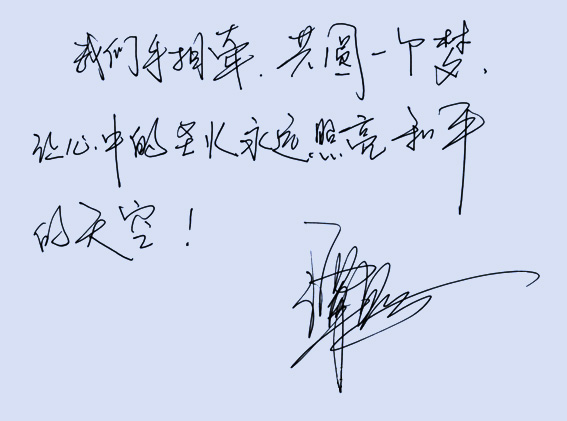 我们手相牵.共圆一个梦.
让心中的圣火永远照亮和平
的天空!